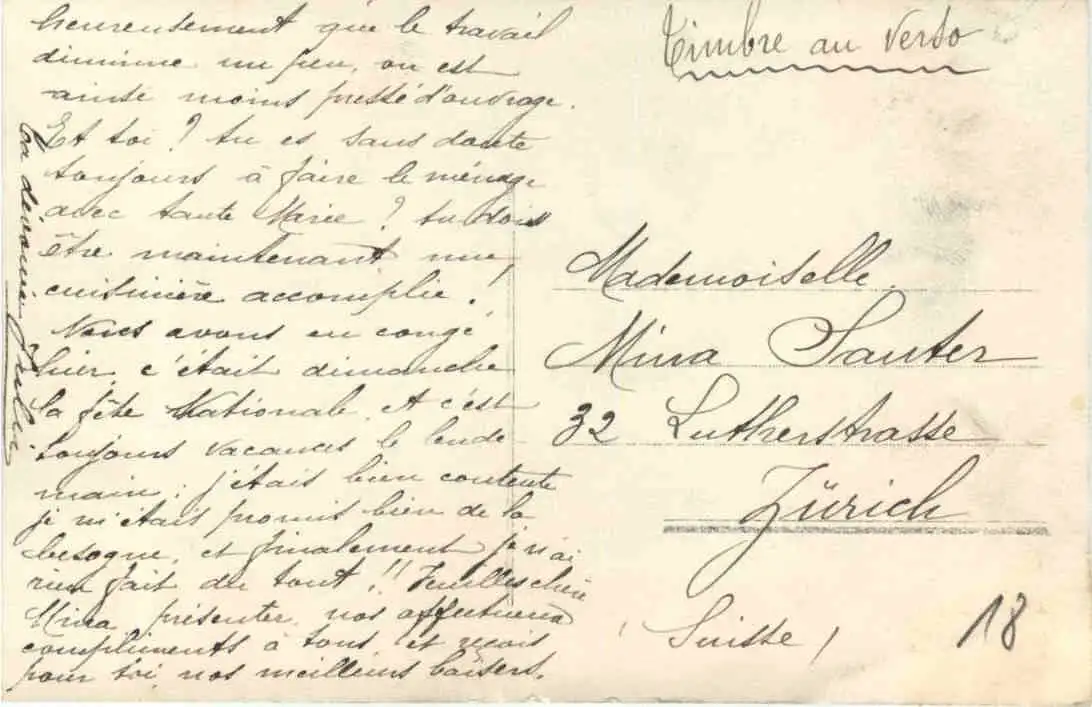 heureusement que le travail
diminue un peu, on est
ainsi moins pressé d'ouvrage.
Et toi ? tu es sans doute
toujours à faire le ménage
avec tante Marie ? tu dois
être maintenant une
cuisinière accomplie !
Nous avons eu congé
hier, c'était dimanche
la fête Nationale. Et c'est
toujours vacances le lende
main ; j'étais bien contente
je m'étais promis bien de la
besogne, et finalement je n'ai
rien fait du tout !! Veuilles chère
Mina présenter nos affectueux
compliments à tous et reçois
pour toi nos meilleurs baisers.
Ta dévouée
Timbre au verso
Mademoiselle
Mina Sauter
32 Lutherstrasse
Zürich
(Suisse)
18